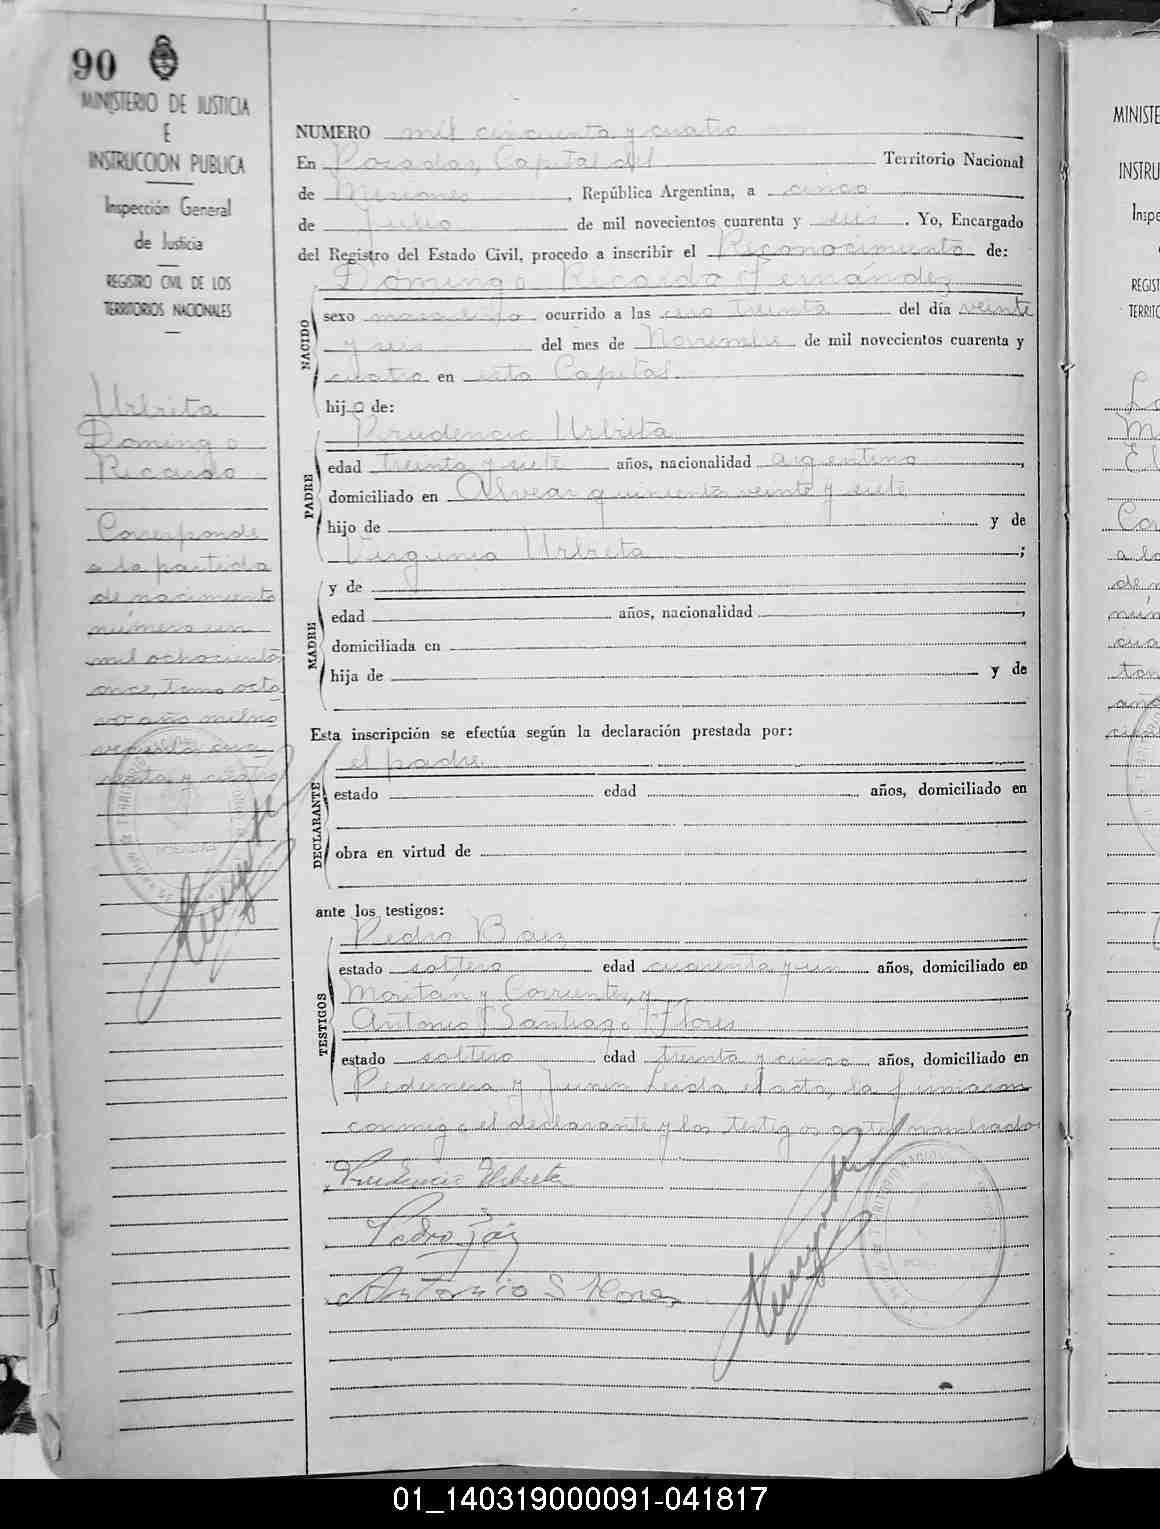 90
MINISTERIO DE JUSTICIA
E
INSTRUCCION PUBLICA
Inspección General
de Justicia
REGISTRO CIVIL DE LOS
TERRITORIOS NACIONALES
Urbrita
Domingo
Ricardo
Corresponde
a la partida
de nacimiento
número un
mil ochociento
once, Tomo octa
vo año mil no
vecientos cua
renta y cuatro
NUMERO mil cincuenta y cuatro
En Posadas, Capital del Territorio Nacional
de Misiones, República Argentina, a cinco
de Julio de mil novecientos cuarenta y seis. Yo, Encargado
del Registro del Estado Civil, procedo a inscribir el Reconocimiento de:
Domingo Ricardo Fernández
NACIDO
sexo masculino ocurrido a las cero treinta del día veinte
y seis del mes de Noviembre de mil novecientos cuarenta y
cuatro en esta Capital.
hijo de:
PADRE
Prudencio Urbrita
edad treinta y siete años, nacionalidad argentino,
domiciliado en Alvear quinientos veinte y siete
hijo de y de
Virginia Urbreta;
MADRE
y de
edad años, nacionalidad,
domiciliada en
hija de y de
Esta inscripción se efectúa según la declaración prestada por:
el padre
DECLARANTE
estado edad años, domiciliado en
obra en virtud de
ante los testigos:
TESTIGOS
Pedro Báez
estado soltero edad cuarenta y un años, domiciliado en
Moritán y Corrientes, y
Antonio Santiago Flores
estado soltero edad treinta y cinco años, domiciliado en
Pedernera y Junín Leída el acta, la firmaron
conmigo el declarante y los testigos antes nombrados
Prudencio Urbieta
Pedro Báez
Antonio S Flores
MINISTE
INSTRU
Inspe
REGIST
TERRITO
01_140319000091-041817